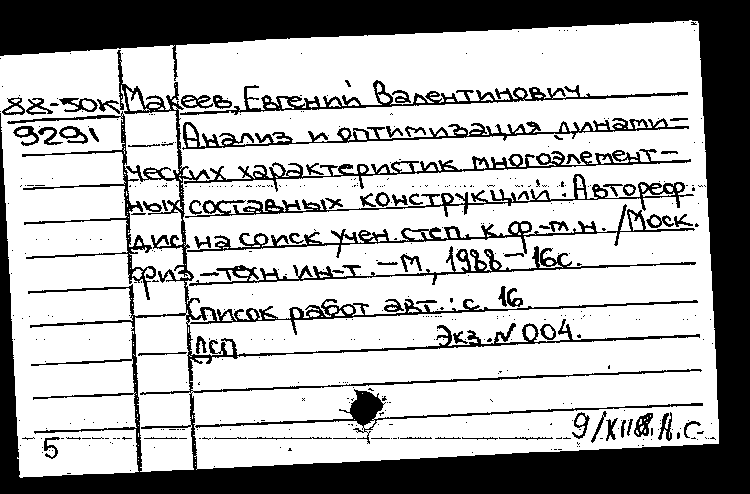 88-50к Макеев, Евгений Валентинович.
9291 Анализ и оптимизация динами-
ческих характеристик многоэлемент-
ных составных конструкций : Автореф.
дис. на соиск учен. степ. к. ф.-м. н. / Моск.
физ.-техн. ин-т. - М., 1988. - 16с.
Список работ авт.: с. 16
ДСП Экз. N 004.
9/XII88. А.С
5